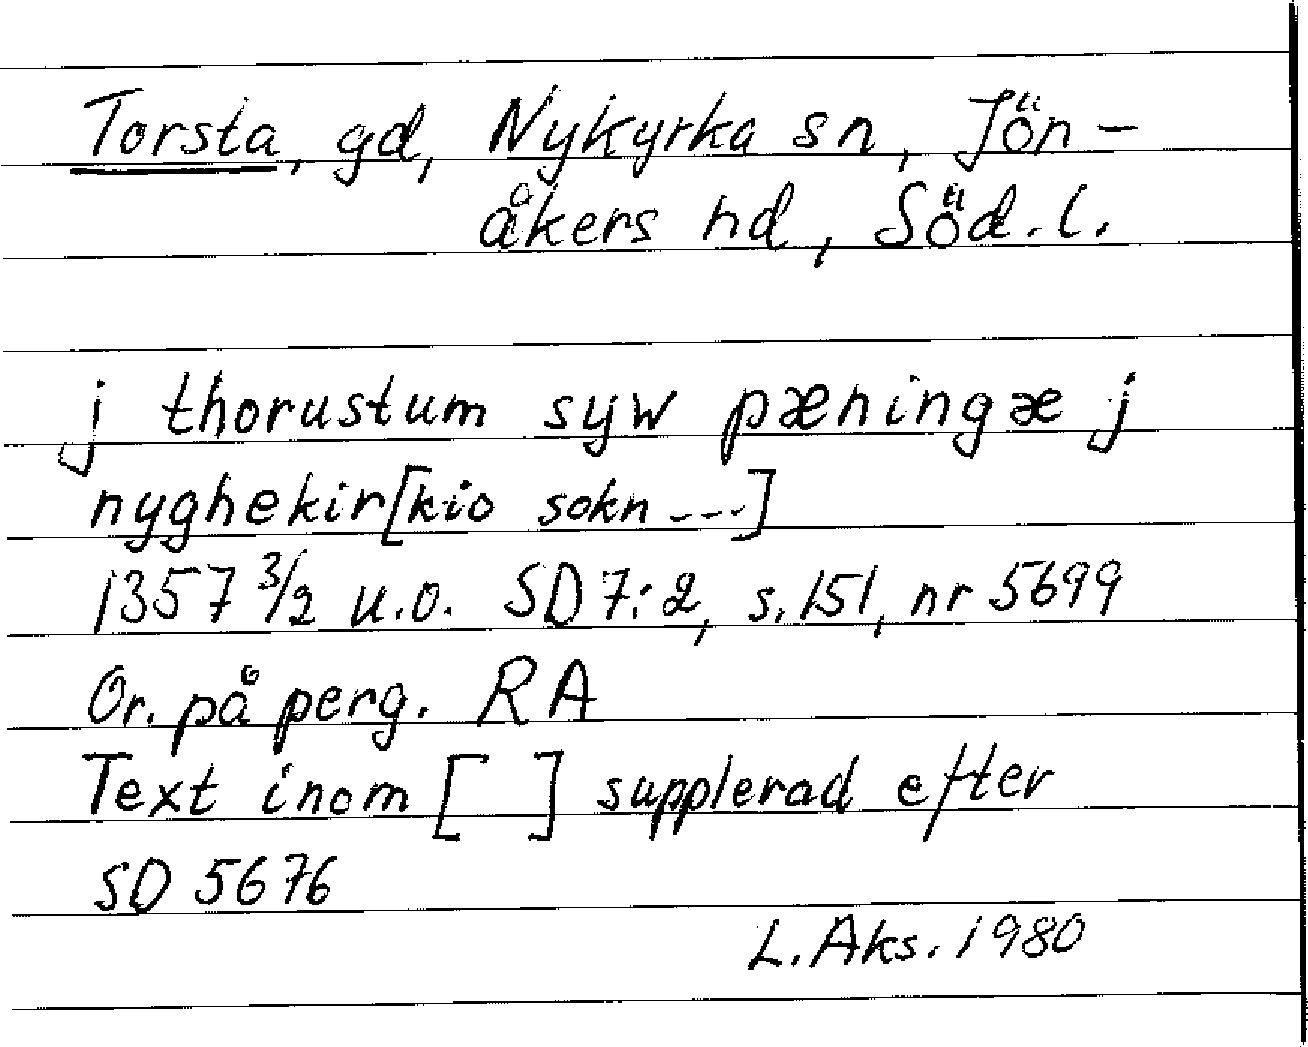 Torsta, gd, Nykyrka sn, Jön-
åkers hd, Söd. l.
j thorustum syw pæningæ j
nyghekir[kio sokn ---]
1357 3/2 u.o. SD 7:2, s. 151, nr 5699
Or. på perg. RA
Text inom [ ] supplerad efter
SD 5676
L. Aks. 1980